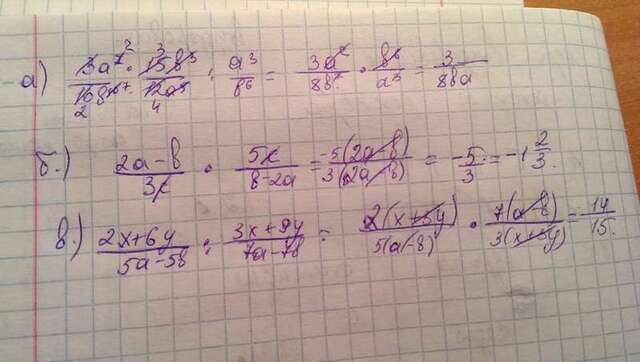 а) 3a⁷/16b¹⁷ · 15b³/12a⁵ : a³/b⁶ = 3a²/8b⁷ · b⁶/a³ = 3/8ba
б.) 2a-b/3x · 5x/b-2a = -5(2a-b)/3(2a-b) = -5/3 = -1 2/3.
в.) 2x+6y/5a-5b : 3x+9y/7a-7b = 2(x+3y)/5(a-b) · 7(a-b)/3(x+3y) = 14/15.